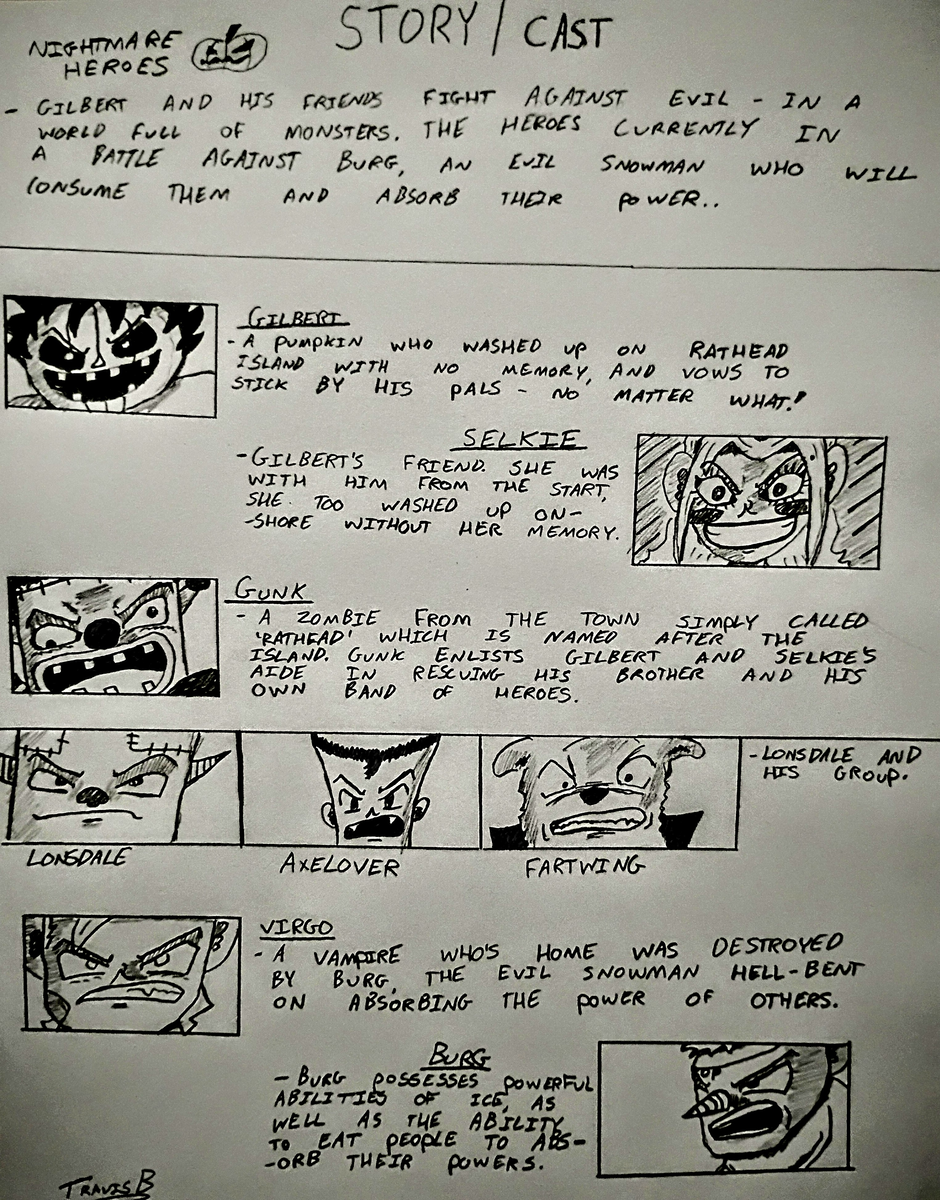 STORY / CAST
NIGHTMARE
HEROES
- GILBERT AND HIS FRIENDS FIGHT AGAINST EVIL - IN A
WORLD FULL OF MONSTERS. THE HEROES CURRENTLY IN
A BATTLE AGAINST BURG, AN EVIL SNOWMAN WHO WILL
CONSUME THEM AND ABSORB THEIR POWER..
GILBERT
- A PUMPKIN WHO WASHED UP ON RATHEAD
ISLAND WITH NO MEMORY, AND VOWS TO
STICK BY HIS PALS - NO MATTER WHAT!
SELKIE
- GILBERT'S FRIEND. SHE WAS
WITH HIM FROM THE START,
SHE TOO WASHED UP ON-
-SHORE WITHOUT HER MEMORY.
GUNK
- A ZOMBIE FROM THE TOWN SIMPLY CALLED
'RATHEAD' WHICH IS NAMED AFTER THE
ISLAND. GUNK ENLISTS GILBERT AND SELKIE'S
AIDE IN RESCUING HIS BROTHER AND HIS
OWN BAND OF HEROES.
- LONSDALE AND
HIS GROUP.
LONSDALE AXELOVER FARTWING
VIRGO
- A VAMPIRE WHO'S HOME WAS DESTROYED
BY BURG, THE EVIL SNOWMAN HELL-BENT
ON ABSORBING THE POWER OF OTHERS.
BURG
- BURG POSSESSES POWERFUL
ABILITIES OF ICE, AS
WELL AS THE ABILITY
TO EAT PEOPLE TO ABS-
-ORB THEIR POWERS.
TRAVIS B